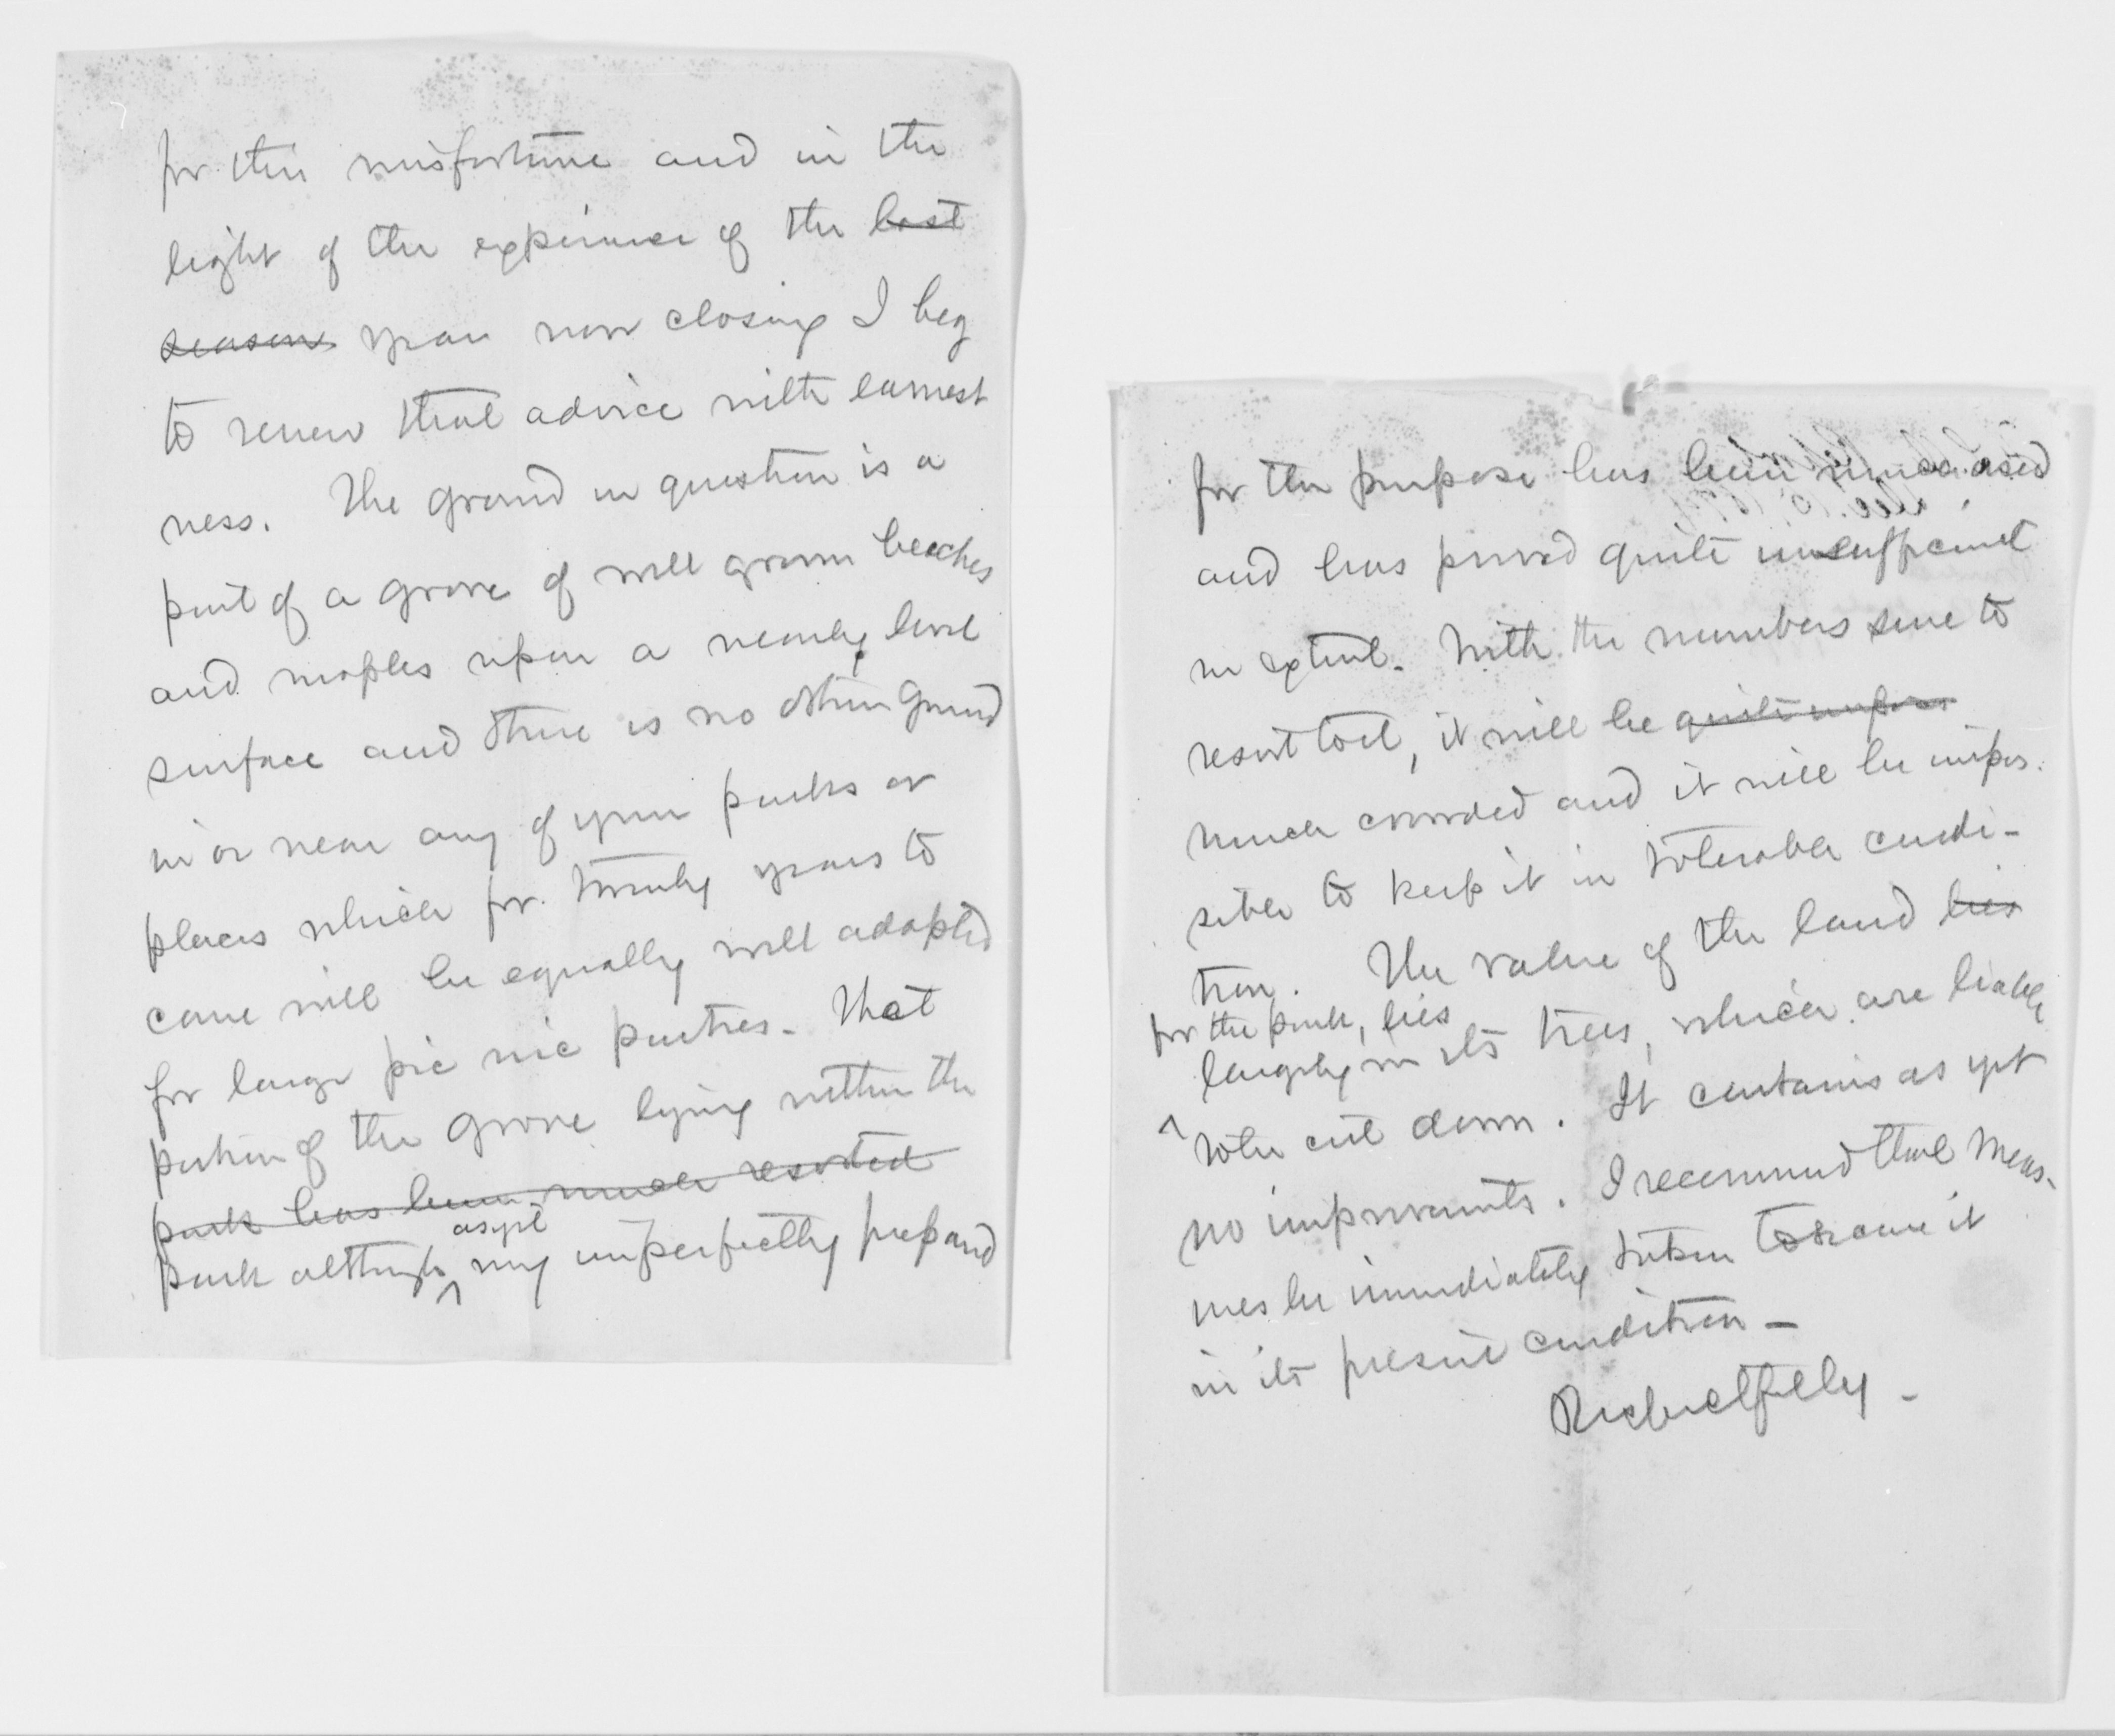 for this misfortune and in the
light of the experience of the last
season year now closing I beg
to renew that advice with earnest
ness. The ground in question is a
part of a grove of well grown beeches
and maples upon a nearly level
surface and there is no other ground
in or near any of your parks or
places which for twenty years to
come will be equally well adapted
for large pic nic parties. That
portion of the grove lying within the
park has been much resorted
as yet
park although very imperfectly prepared
for the purpose has been much used
and has proved quite insufficient
in extent. With the numbers sure to
resort to it, it will be quite
much crowded and it will be impos-
sible to keep it in tolerable condi-
tion. The value of the land lies
for the park, lies
largely in its trees, which are liable
to be cut down. It contains as yet
no improvements. I recommend that meas-
ures be immediately taken to secure it
in its present condition -
Respectfully -